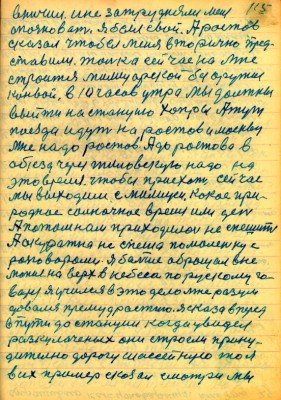 115
и не затрудняли меня
я был свой. А ростов
сказал чтобы меня вторично пред-
ставим. только сейчас на мне
строится милицарской вооружи
конвой, в 10 часов утра мы должны
выйти на станцию Хопры Атут
поезда идут на ростов и москву
мне надо ростов. А до ростова в
обезд через надо на
это время. чтобы приехат. сейчас
мы выходим с милицией, какое при-
родное солнечное время или ден
А потом нам приходилос не спешит
Аккуратна не спеша помаленку с
роповорами. Я балше обращал вне
мание на верх в небеса по рускому го-
вору я учился в это дело мне разум
довался премудрастию. я сказал вперед
в пути до станции когда увидел
разкулаченых они строели прину-
дително дорогу шассейную то я
в их пример сказал смотри мы